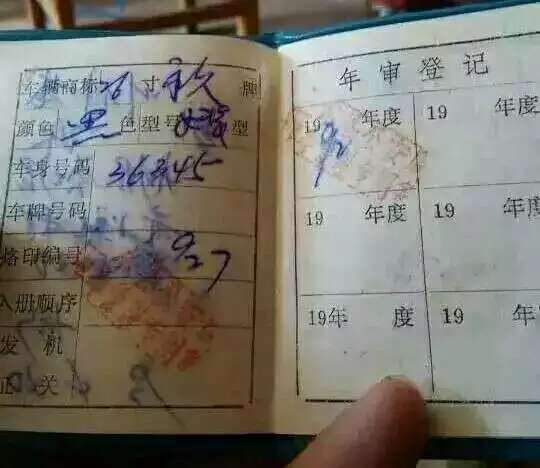 车辆商标 26寸永久牌
颜色 黑色 型号 型
车身号码 36345
车牌号码
烙印编号 927
入册顺序
发机
证关
年审登记
1992年度 19 年度
19 年度 19 年度
19年 度 19 年